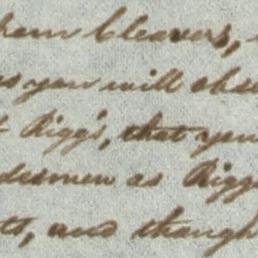 Cleavers,
you will obse
Riggs, that you
desmen as Rigg
ts, and though